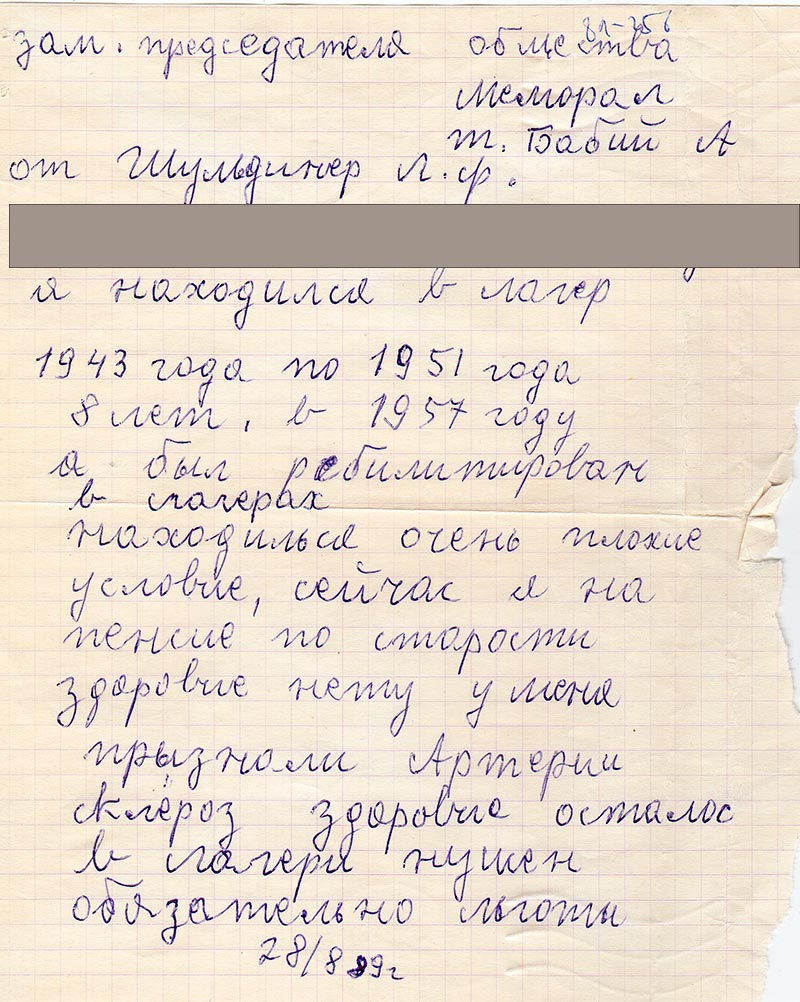 81-256
зам. председателя общества
Меморал
т. Бабий А
от Шульдинер Л.Ф.
я находился в лагер
1943 года по 1951 года
8 лет, в 1957 году
я был ребилитирован
в лагерах
находилься очень плохие
условие, сейчас я на
пенсие по старости
здоровие нету у меня
прызнали Артерии
склероз здоровие осталос
в лагери нушен
обязательно льготы
28/8 89г